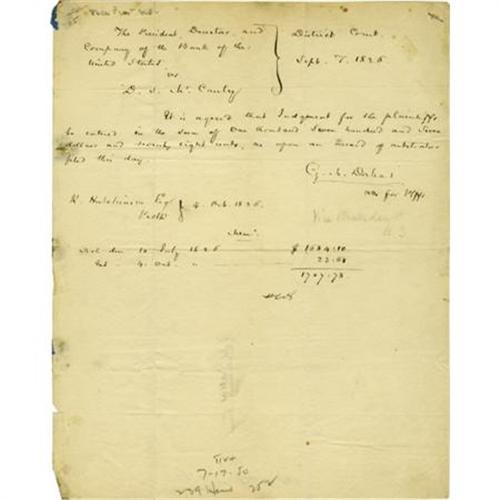 The President, Directors, and
Company of the Bank of the
United States
vs
D. S. McCauley
District Court
Sept. T. 1826
It is agreed that Judgment for the plaintiffs
be entered in the sum of One thousand Seven hundred and Seven
dollars and seventy eight cents, as upon an award of arbitrators
filed this day.
G. M. Dallas
for Plffs
R. Hutchinson Esq
4. Oct. 1826.
Note due 10 July 1826 $1684.10
Int. 4. Oct. "
1707.78
7-17-50